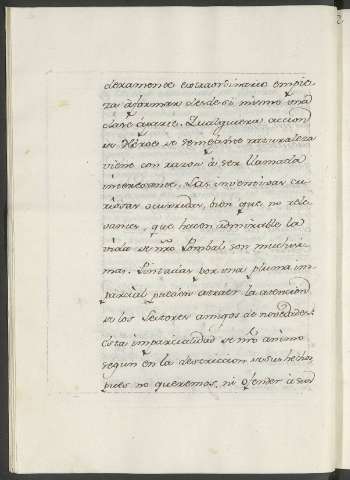 deramente extraordinario empie-
za à formar desde si mismo una
clase aparte. Qualquiera accion
de Heroe de semejante naturaleza
viene con razon à ser llamada
interesante. Las inventivas cu-
riosas ocurridas, bien que no rele-
vantes, que hacen admirable la
vida de nro Pombal son muchissi-
mas. Pintadas por una pluma im-
parcial pueden atraèr la atencion
de los Lectores amigos de novedades.
Esta imparcialidad de nro animo
seguìr en la descripcion de sus hechos,
pues no queremos, ni ofender à sus